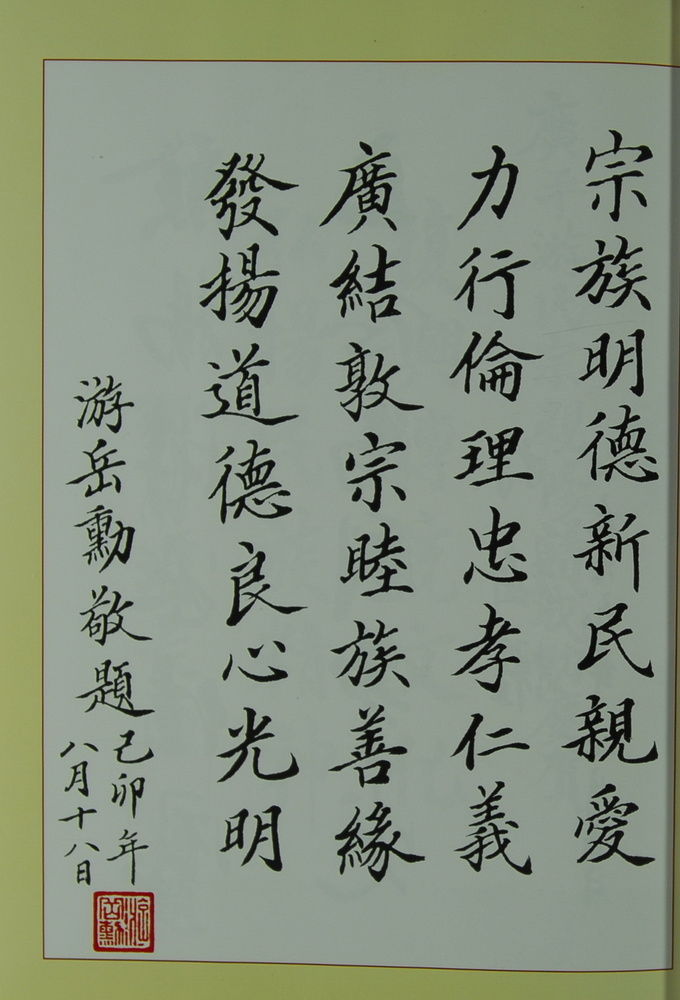 宗族明德新民親愛
力行倫理忠孝仁義
廣結敦宗睦族善緣
發揚道德良心光明
游岳勳敬題
己卯年
八月十八日
游岳勳